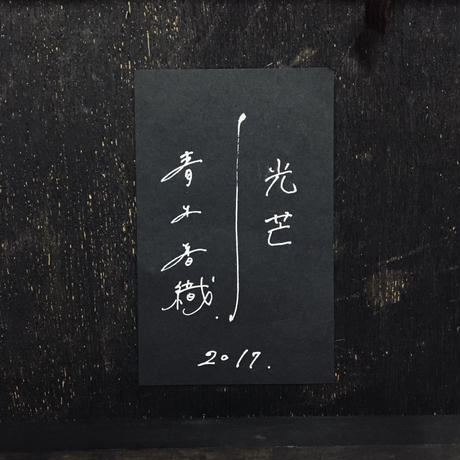 光芒
青木香織.
2017.